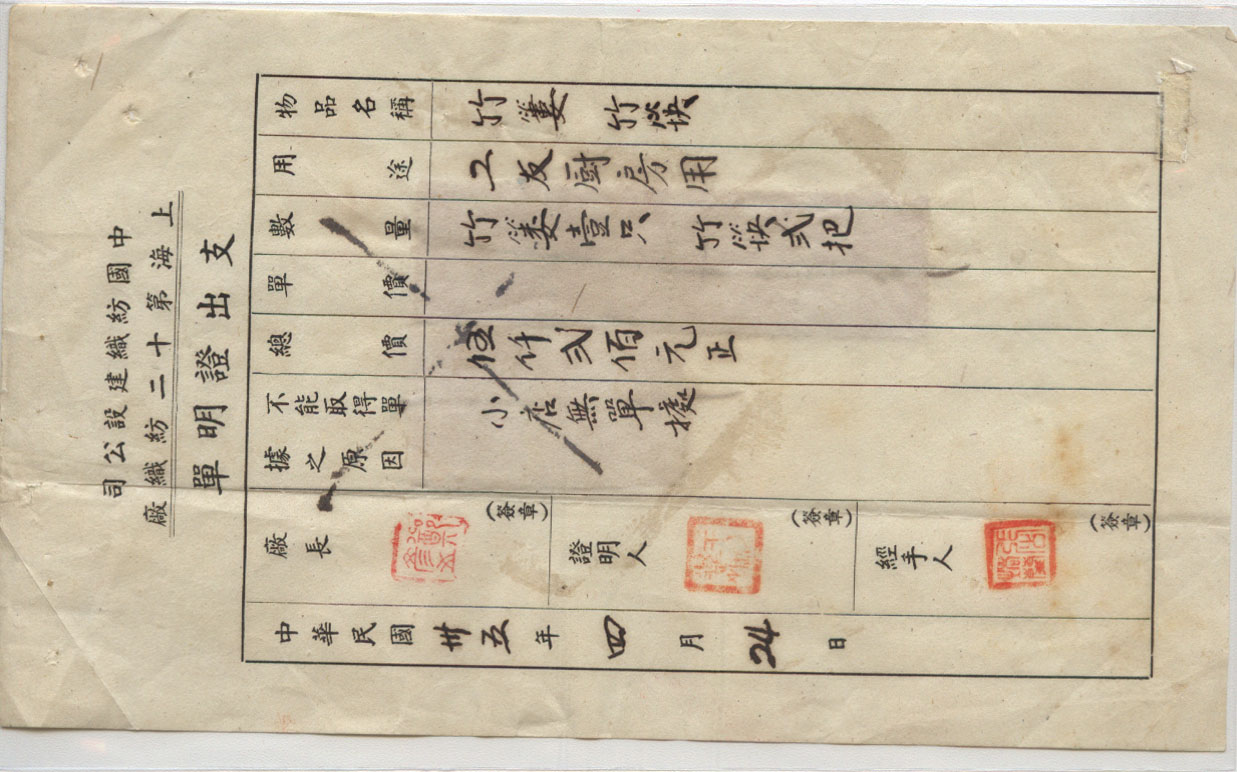 中國紡織建設公司
上海第十二紡織廠
支出證明單
物品名稱 竹簍 竹筷
用途 工友厨房用
數量 竹簍壹只 竹筷弍把
單價
總價 伍仟弍佰元正
不能取得單據之原因 小店無單據
廠長 (簽章) 證明人 (簽章) 經手人 (簽章)
中華民國卅五年四月24日